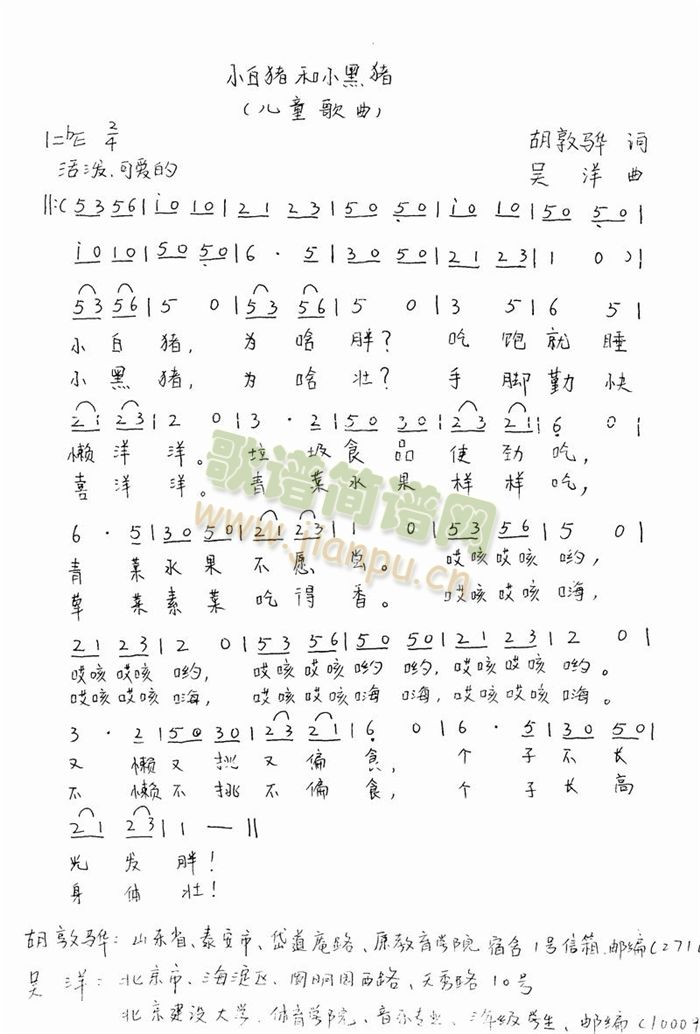 小白猪和小黑猪
(儿童歌曲)
1=bE 2/4
胡敦骅 词
活泼.可爱的
吴 洋 曲
||:( 5 3 5 6 | i 0 1 0 | 2 1 2 3 | 5 0 5 0 | i 0 1 0 | 5 0 5 0 |
i 0 1 0 | 5 0 5 0 | 6 · 5 | 3 0 5 0 | 2 1 2 3 | 1 0 ) |
5 3 5 6 | 5 0 | 5 3 5 6 | 5 0 | 3 5 | 6 5 |
小白猪, 为啥胖? 吃饱就睡
小黑猪, 为啥壮? 手脚勤快
2 1 2 3 | 2 0 | 3 · 2 | 5 0 3 0 | 2 3 2 1 | 6 0 |
懒洋洋。 垃圾食品使劲吃,
喜洋洋。 青菜水果样样吃,
6 · 5 | 3 0 5 0 | 2 1 2 3 | 1 0 | 5 3 5 6 | 5 0 |
青菜水果不愿尝。 哎咳哎咳哟,
草菜素菜吃得香。 哎咳哎咳嗨,
2 1 2 3 | 2 0 | 5 3 5 6 | 5 0 5 0 | 2 1 2 3 | 2 0 |
哎咳哎咳哟, 哎咳哎咳哟哟, 哎咳哎咳哟。
哎咳哎咳嗨, 哎咳哎咳嗨嗨, 哎咳哎咳嗨。
3 · 2 | 5 0 3 0 | 2 3 2 1 | 6 0 | 6 · 5 | 3 0 5 0 |
又懒又挑又偏食, 个子不长
不懒不挑不偏食, 个子长高
2 1 2 3 | 1 — ||
光发胖!
身体壮!
胡敦骅: 山东省、泰安市、岱道庵路、原教育学院宿舍1号信箱.邮编(2710
吴 洋: 北京市、海淀区、圆明园西路、天秀路10号
北京建设大学、体育学院、音乐专业、 年级学生、邮编(1000
歌谱简谱网
www.jianpu.cn